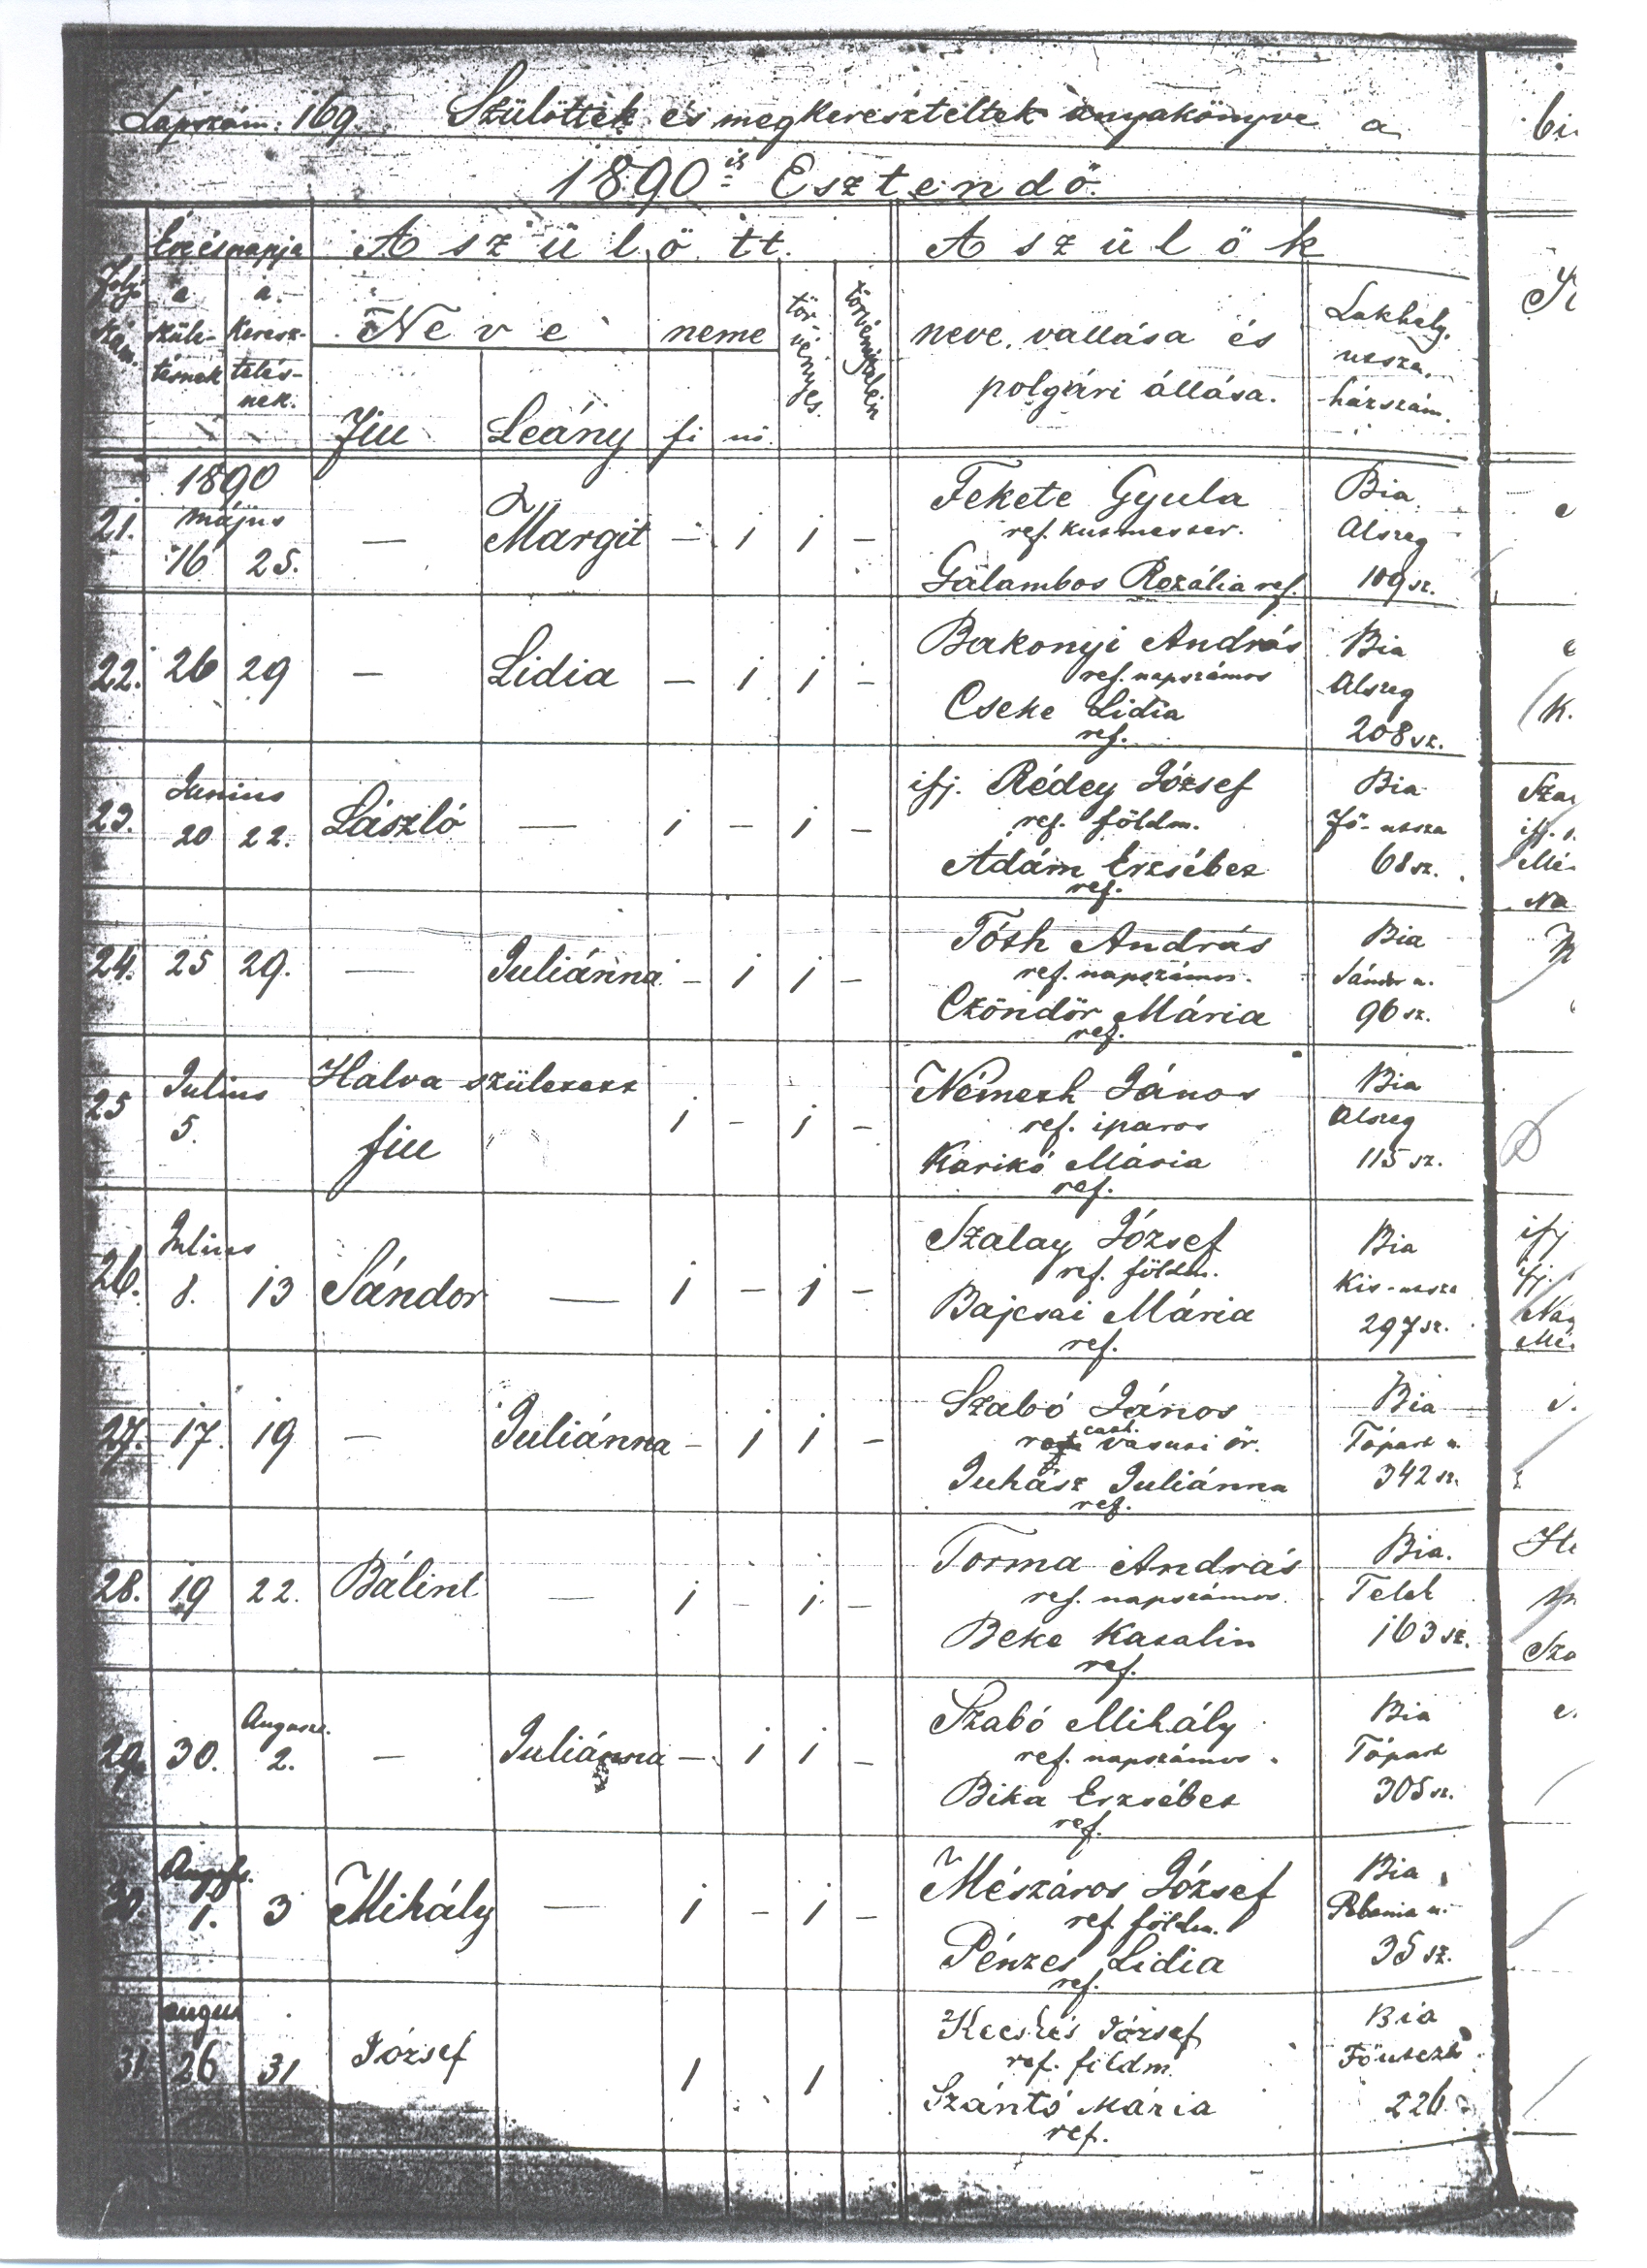 Lapszám: 169. Szülöttek és megkereszteltek anyakönyve a
1890 is Esztendő.
Év és napja A szülött. A szülők
Folyó szám. a születésnek a keresztelésnek. Neve neme törvényes. törvénytelen neve, vallása és polgári állása. Lakhely, utsza, házszám.
Fiu Leány fi nő.
1890
május
21. 16 25. — Margit - 1 1 - Fekete Gyula Bia
ref. kutmester. Alszeg
Galambos Rozália ref. 109 sz.
22. 26 29 — Lidia - 1 1 - Bakonyi András Bia
ref. napszámos Alszeg
Cseke Lidia 208 sz.
ref.
Junius
23. 20 22. László — 1 - 1 - ifj. Rédey József Bia
ref. földm. Fő-utsza
Adám Erzsébet 68 sz.
ref.
24. 25 29. — Juliánna - 1 1 - Tóth András Bia
ref. napszámos. Sándor u.
Czöndör Mária 96 sz.
ref.
Julius
25 5. Halva született 1 - 1 - Németh János Bia
fiu ref. iparos Alszeg
Karikó Mária 115 sz.
ref.
Julius
26. 8. 13 Sándor — 1 - 1 - Szalay József Bia
ref. földm. Kis-utsza
Bajcsai Mária 297 sz.
ref.
27. 17. 19 — Juliánna - 1 1 - Szabó János Bia
cath. vasuti őr. Tópart u.
Juhász Juliánna 342 sz.
ref.
28. 19 22. Bálint — 1 - 1 - Torma András Bia.
ref. napszámos. Telek
Beke Katalin 163 sz.
ref.
August.
29. 30. 2. — Juliánna - 1 1 - Szabó Mihály Bia
ref. napszámos. Tópart
Bika Erzsébet 305 sz.
ref.
30. 1. 3 Mihály — 1 - 1 - Mészáros József Bia
ref. földm. u.
Pénzes Lidia 35 sz.
ref.
august
31 26 31 József 1 1 Kecskés József Bia
ref. földm. Főutsza
Szántó Mária 226
ref.